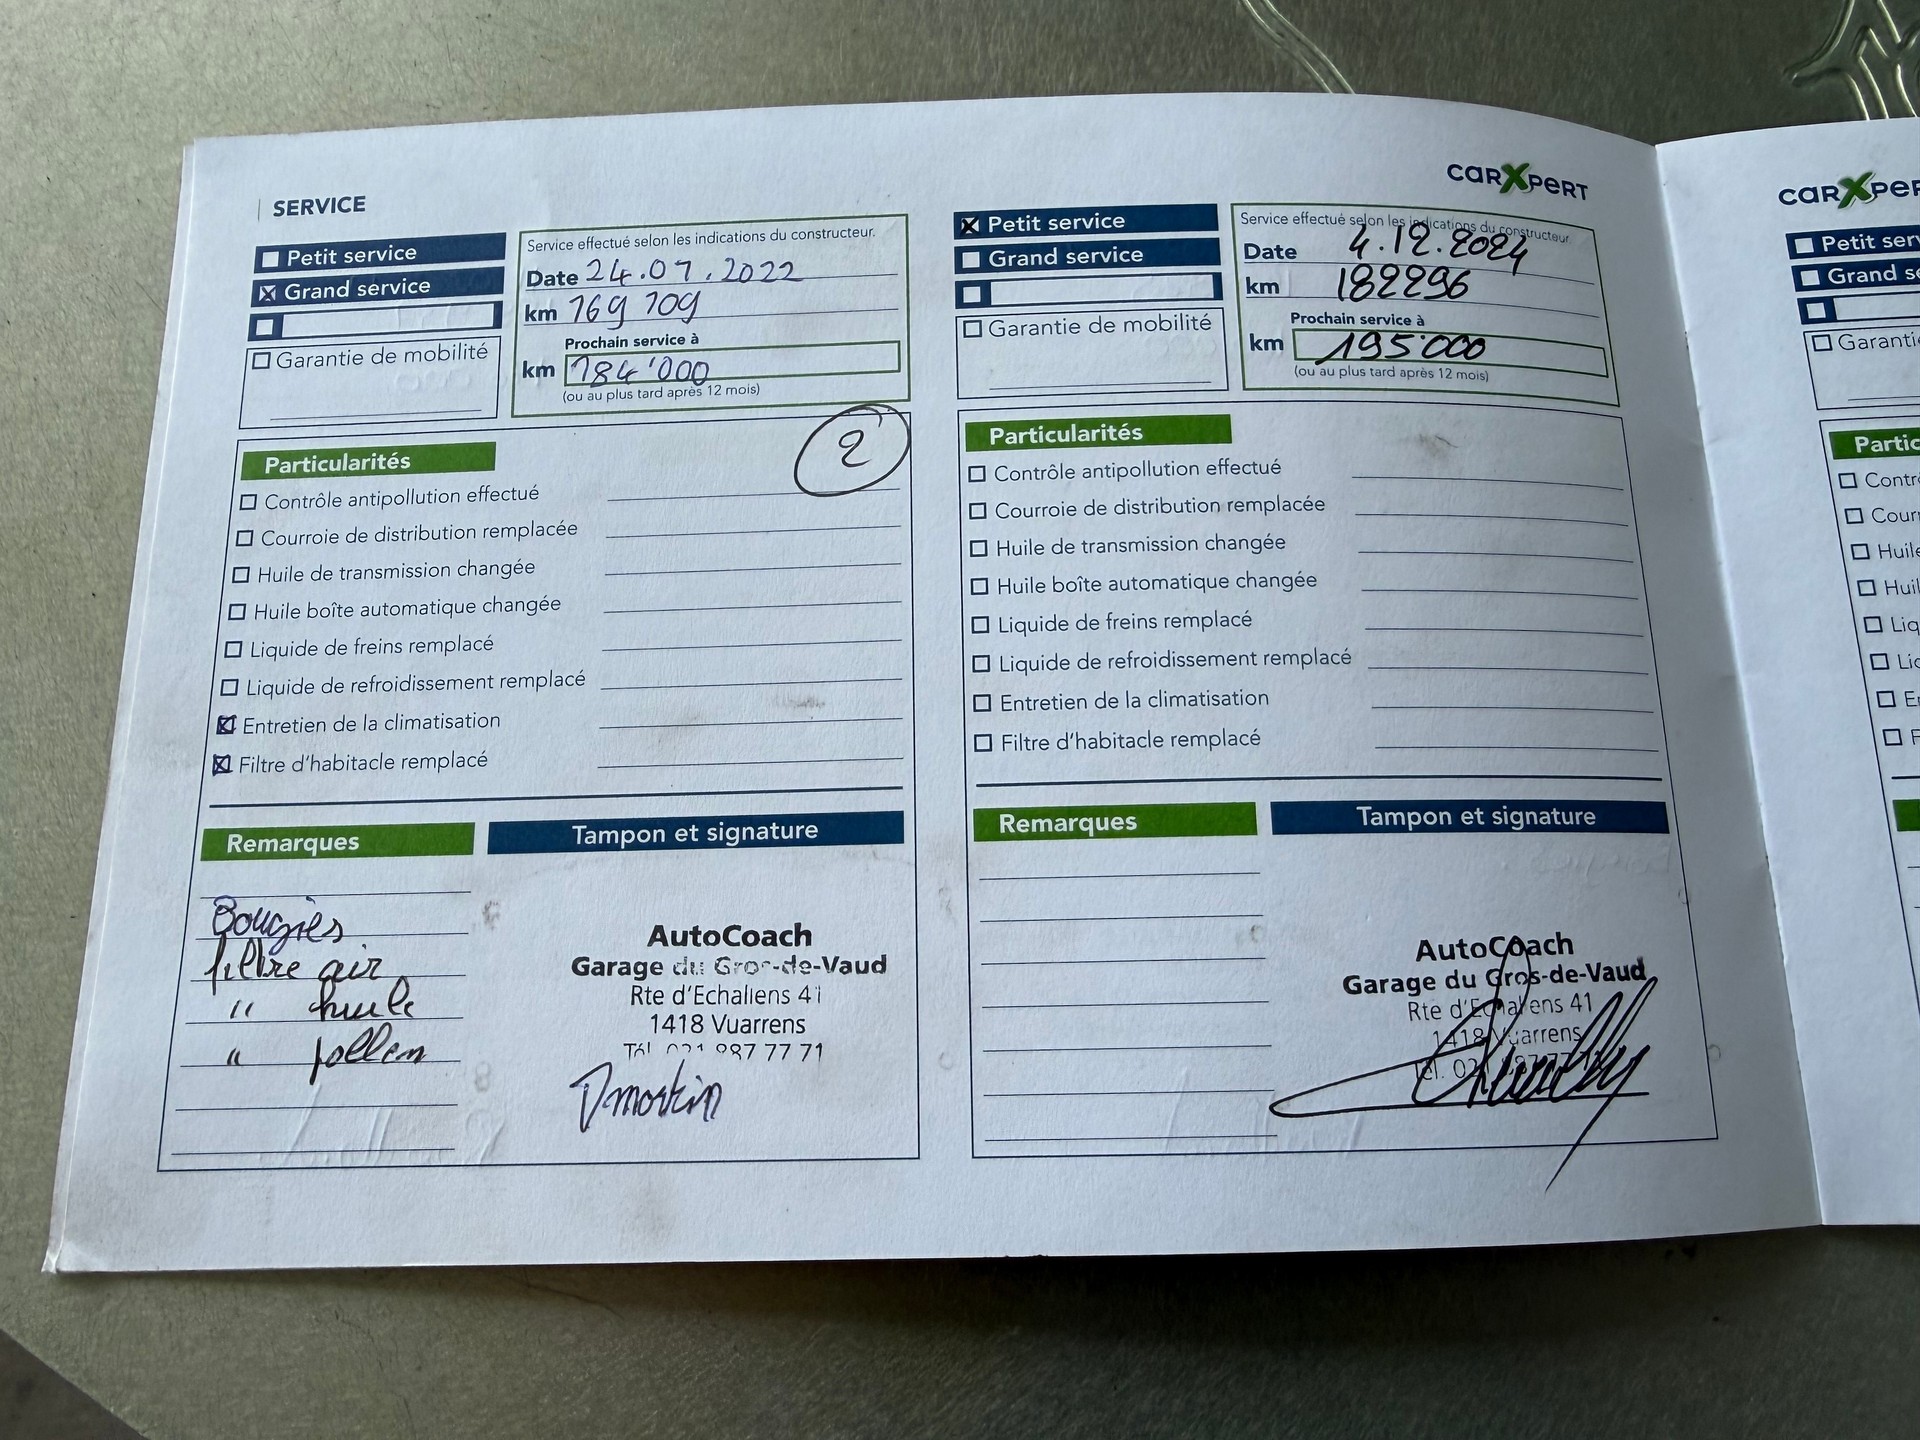 SERVICE
Petit service
Grand service
Garantie de mobilité
Service effectué selon les indications du constructeur.
Date 24.07.2022
km 169 109
Prochain service à
km 184'000
(ou au plus tard après 12 mois)
2
Particularités
Contrôle antipollution effectué
Courroie de distribution remplacée
Huile de transmission changée
Huile boîte automatique changée
Liquide de freins remplacé
Liquide de refroidissement remplacé
Entretien de la climatisation
Filtre d'habitacle remplacé
Remarques
Bougies
filtre air
" huile
" pollen
Tampon et signature
AutoCoach
Garage du Gros-de-Vaud
Rte d'Echallens 41
1418 Vuarrens
Tél. 021 887 77 71
carXpert
Petit service
Grand service
Garantie de mobilité
Service effectué selon les indications du constructeur
Date 4.12.2024
km 182296
Prochain service à
km 195'000
(ou au plus tard après 12 mois)
Particularités
Contrôle antipollution effectué
Courroie de distribution remplacée
Huile de transmission changée
Huile boîte automatique changée
Liquide de freins remplacé
Liquide de refroidissement remplacé
Entretien de la climatisation
Filtre d'habitacle remplacé
Remarques
Tampon et signature
AutoCoach
Garage du Gros-de-Vaud
Rte d'Echallens 41
1418 Vuarrens
Tél. 02
carXper
Petit serv
Grand se
Garanti
Partic
Contr
Cour
Huile
Huil
Liq